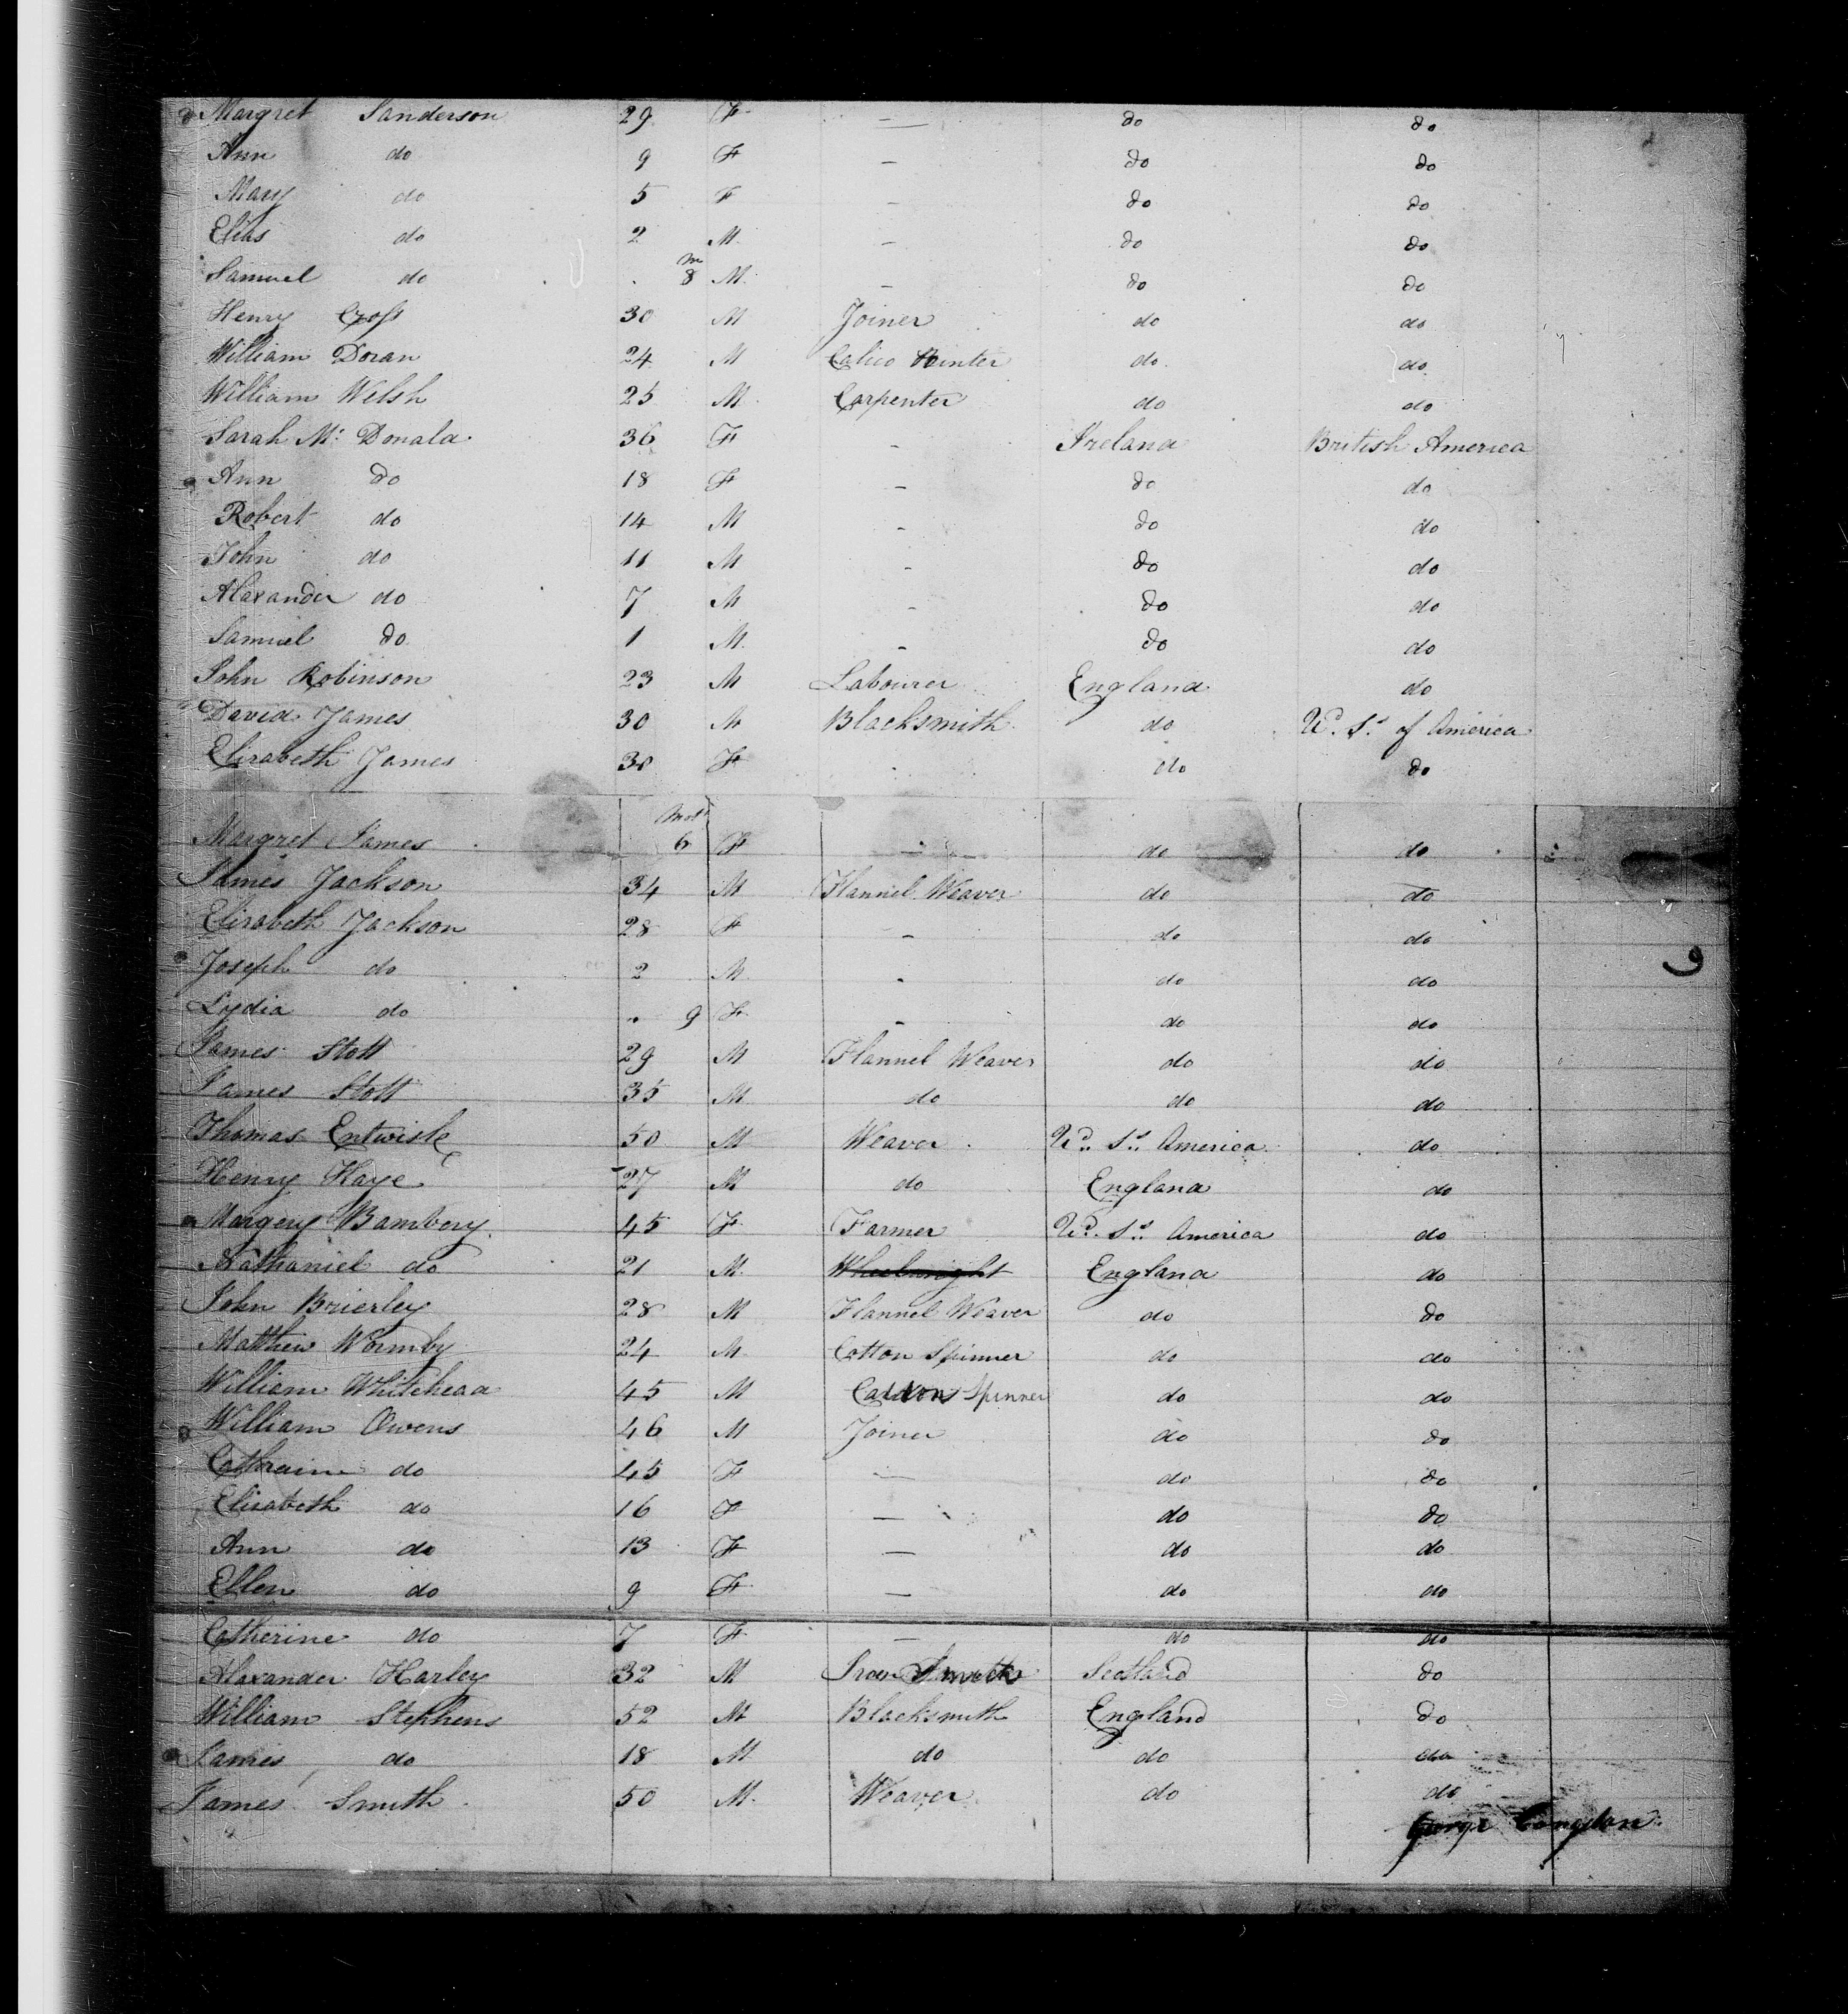 Margret Sanderson 29 F — do do
Ann do 9 F — do do
Mary do 5 F — do do
Elias do 2 M — do do
Samuel do 8 m M — do do
Henry Croft 30 M Joiner do do
William Doran 24 M Calico Printer do do
William Welsh 25 M Carpenter do do
Sarah Mc Donald 36 F — Ireland British America
Ann do 18 F — do do
Robert do 14 M — do do
John do 11 M — do do
Alaxander do 7 M — do do
Samuel do 1 M — do do
John Robinson 23 M Labourer England do
David James 30 M Blacksmith do Ud. Ss of America
Elizabeth James 30 F — do do
Margret James 6 Mots F — do do
James Jackson 34 M Flannel Weaver do do
Elizabeth Jackson 28 F — do do
Joseph do 2 M — do do
Lydia do 9 F — do do
James Stott 29 M Flannel Weaver do do
James Stott 35 M do do do
Thomas Entwisle 50 M Weaver Ud. Ss. America do
Henry Kaye 27 M do England do
Margery Bambery 45 F Farmer Ud. Ss. America do
Nathaniel do 21 M Wheelwright England do
John Brierley 28 M Flannel Weaver do do
Matthew Wormby 24 M Cotton Spinner do do
William Whitehead 45 M Spinner do do
William Owens 46 M Joiner do do
Cathraine do 45 F — do do
Elizabeth do 16 F — do do
Ann do 13 F — do do
Ellen do 9 F — do do
Catherine do 7 F — do do
Alaxander Harley 32 M Iron Scotland do
William Stephens 52 M Blacksmith England do
James do 18 M do do do
James Smith 50 M Weaver do do
George Congdon